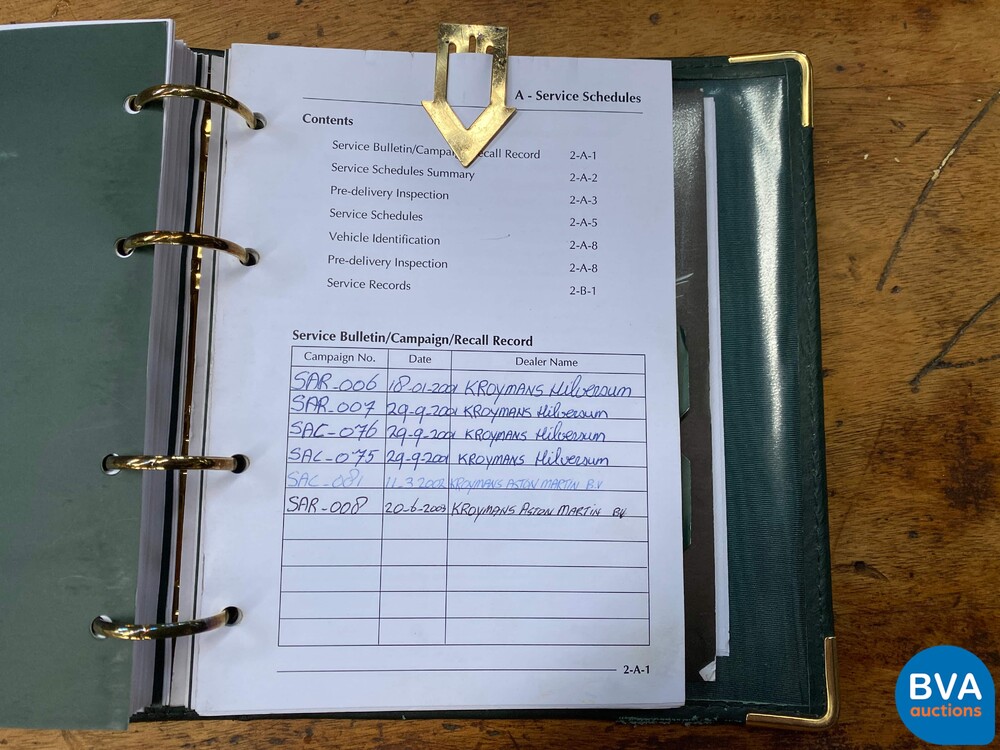 A - Service Schedules
Contents
Service Bulletin/Campa ecall Record 2-A-1
Service Schedules Summary 2-A-2
Pre-delivery Inspection 2-A-3
Service Schedules 2-A-5
Vehicle Identification 2-A-8
Pre-delivery Inspection 2-A-8
Service Records 2-B-1
Service Bulletin/Campaign/Recall Record
Campaign No. Date Dealer Name
SAR-006 18-01-2001 KROYMANS Hilversum
SAR-007 29-9-2001 KROYMANS Hilversum
SAC-076 29-9-2001 KROYMANS Hilversum
SAC-075 29-9-2001 KROYMANS Hilversum
SAC-081 11-3-2002 KROYMANS ASTON MARTIN B.V
SAR-008 20-6-2003 KROYMANS ASTON MARTIN BV
2-A-1
BVA
auctions